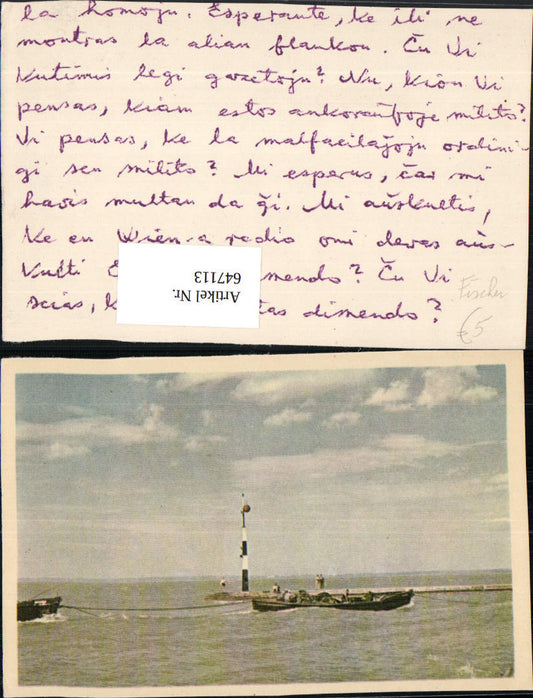 la homoju. Esperante, ke ili ne
montras la alian flankon. Ĉu Vi
Kutimis legi gazetoju? Nu, kion Vi
pensas, kiam estos ankoraŭfoje milito?
Vi pensas, ke la malfacilaĵoju ordini-
gi sen milito? Mi esperus, ĉar mi
havis multan da ĝi. Mi aŭskultis,
ke en Wien-a radio oni devas aŭs-
kulti mendo? Ĉu Vi
scias, tas dismendo?
Artikel Nr.
647113
Fischer
€5